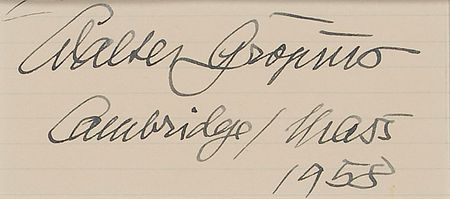 Walter Gropius
Cambridge/Mass
1958